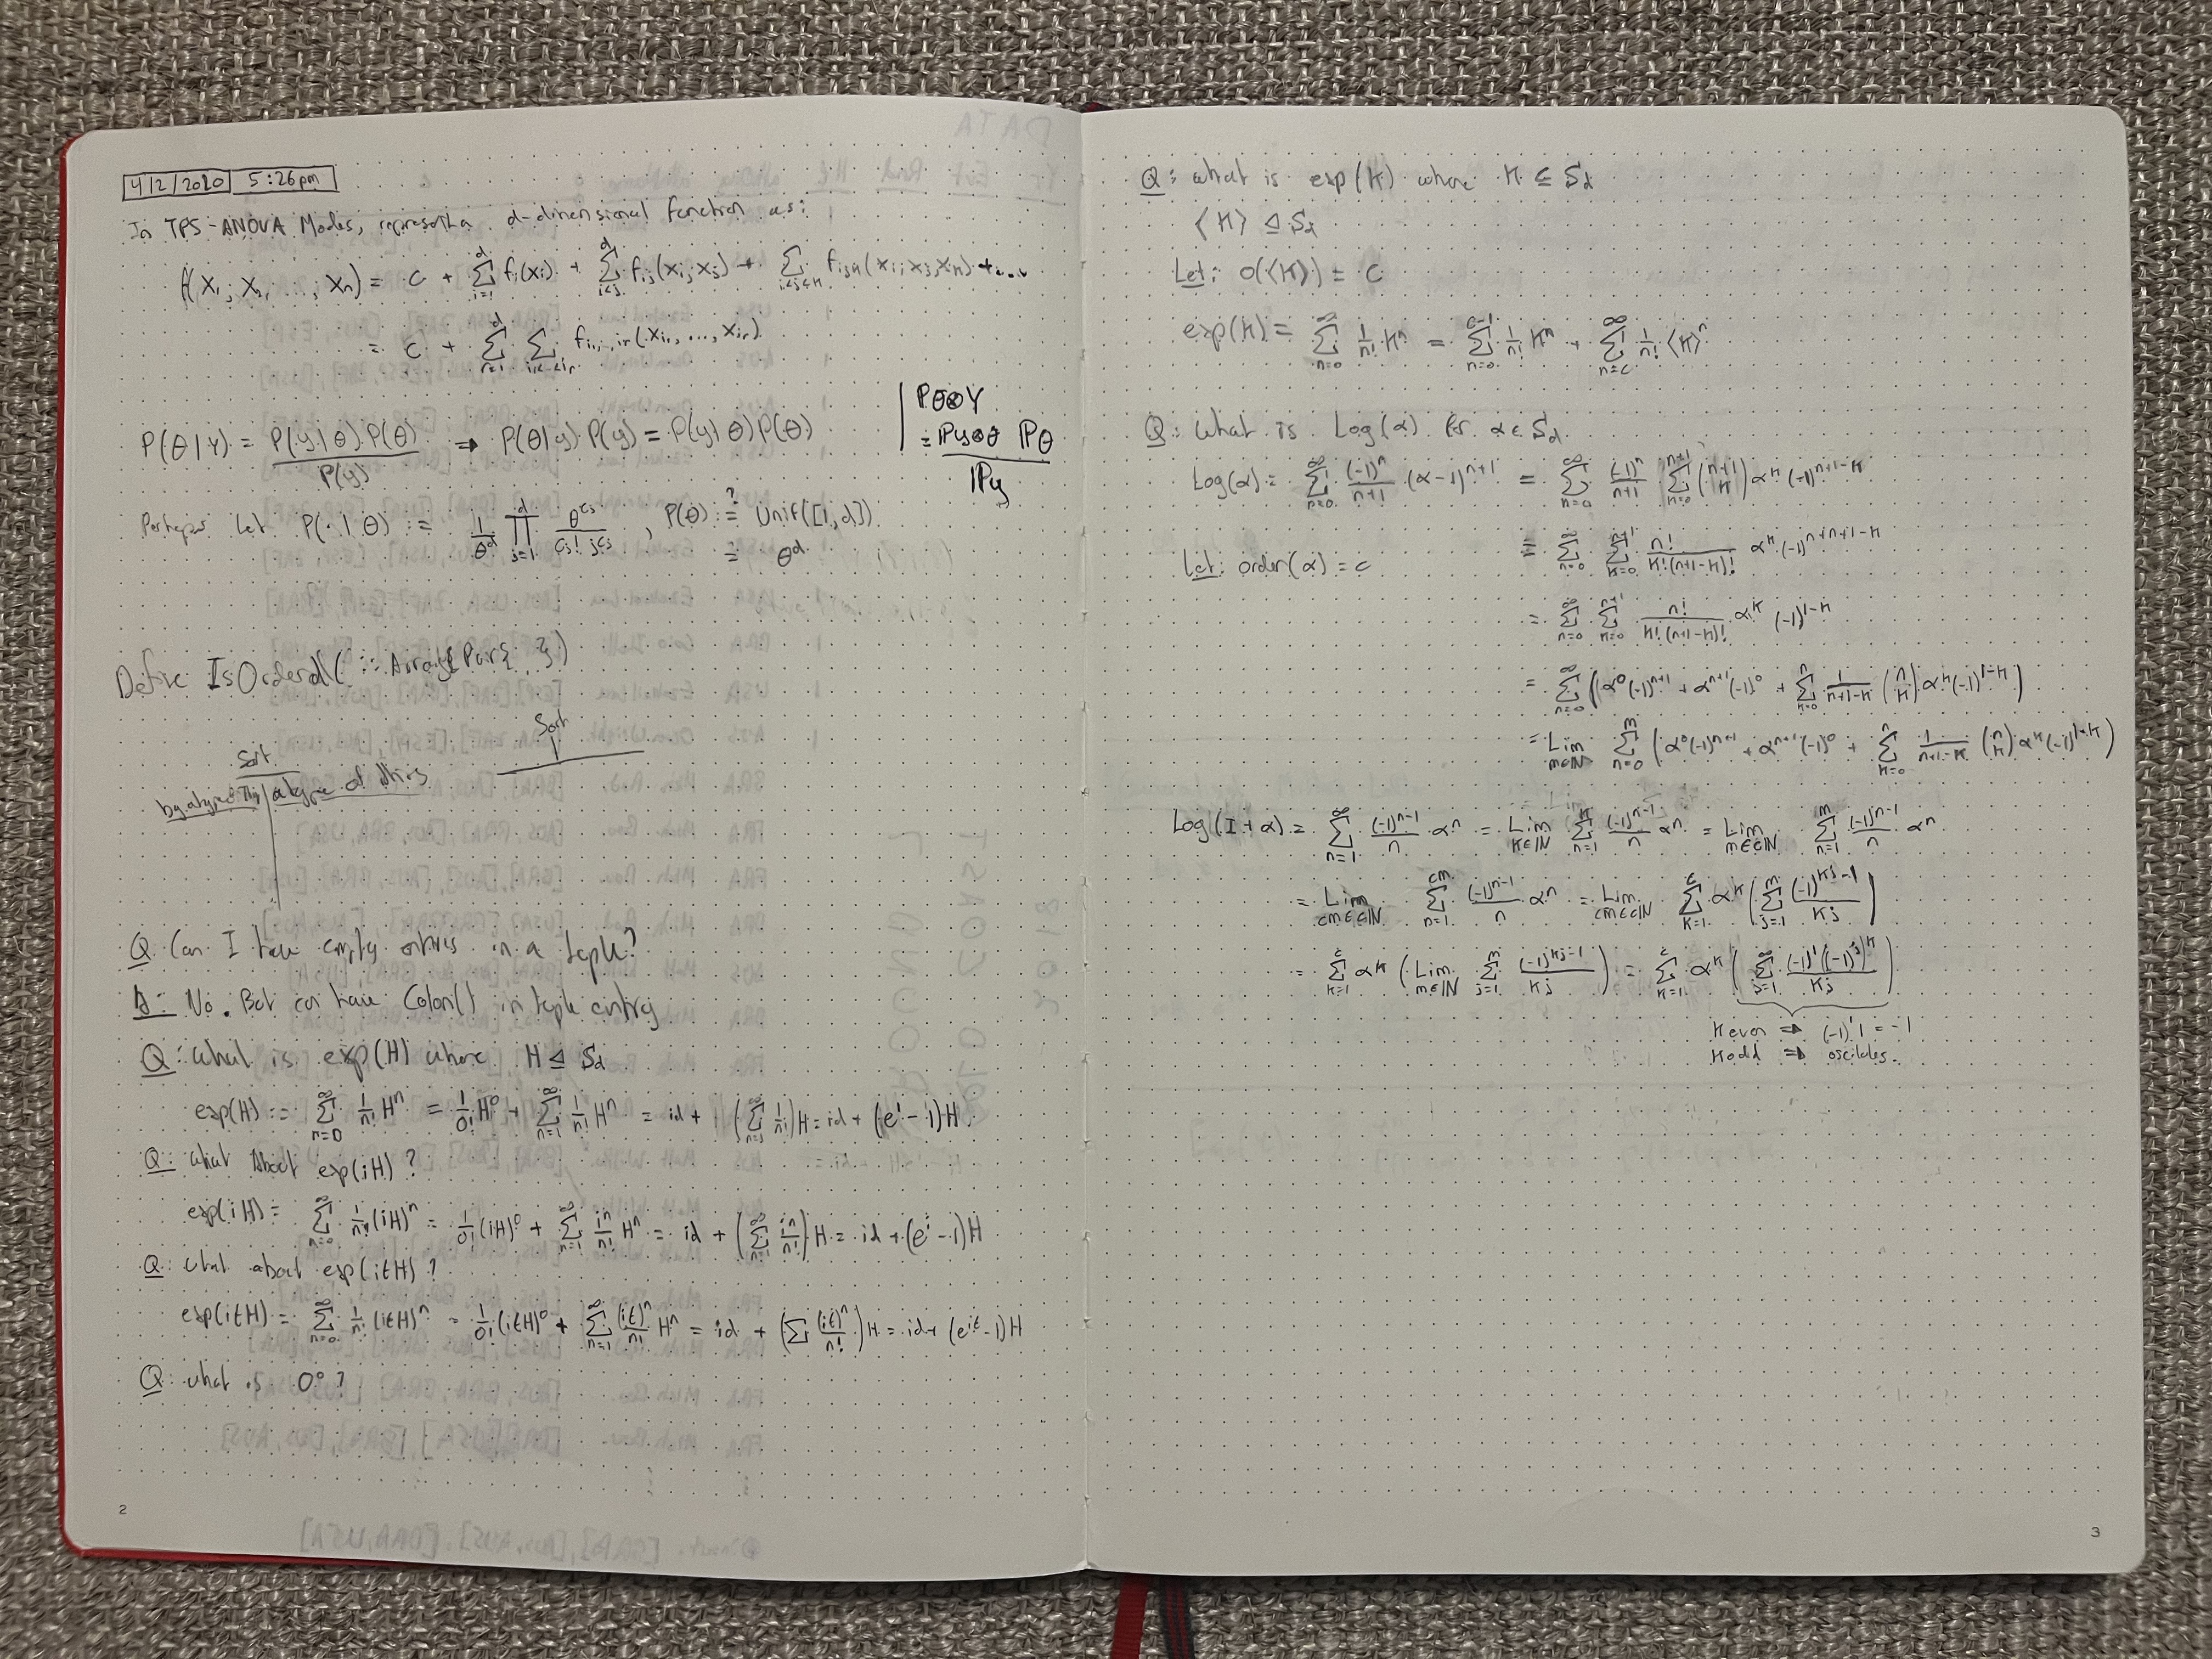 4/2/2020 5:26pm
In TPS-ANOVA Models, represent a d-dimensional function as:
f(x₁, x₂, ..., xₙ) = C + Σ_{i=1}^{d} fᵢ(xᵢ) + Σ_{i<j}^{d} f_{ij}(xᵢ, xⱼ) + Σ_{i<j<k} f_{ijk}(xᵢ, xⱼ, xₖ) + ...
= C + Σ_{r=1}^{d} Σ_{i₁<...<iᵣ} f_{i₁...iᵣ}(x_{i₁}, ..., x_{iᵣ})
P(θ|y) = P(y|θ)P(θ) / P(y) ⇒ P(θ|y) P(y) = P(y|θ)P(θ)
Perhaps let P(·|θ) := 1/θ^d ∏_{j=1}^{d} θ^{cj} / cj! j^{cj} , P(θ) :≟ Unif([1,d])
= θ^d
Define IsOrdered( :: Array{Pair{ }})
Sort
Sort
Q: Can I have empty entries in a tuple?
A: No. But can have Colon() in tuple entry
Q: what is exp(H) where H ⊴ S_d
exp(H) := Σ_{n=0}^{∞} 1/n! Hⁿ = 1/0! H⁰ + Σ_{n=1}^{∞} 1/n! Hⁿ = id + (Σ_{n=1}^{∞} 1/n!) H = id + (e¹ - 1)H
Q: what about exp(iH)?
exp(iH) = Σ_{n=0}^{∞} 1/n! (iH)ⁿ = 1/0! (iH)⁰ + Σ_{n=1}^{∞} iⁿ/n! Hⁿ = id + (Σ_{n=1}^{∞} iⁿ/n!) H = id + (eⁱ - 1)H
Q: what about exp(itH)?
exp(itH) = Σ_{n=0}^{∞} 1/n! (itH)ⁿ = 1/0! (itH)⁰ + Σ_{n=1}^{∞} (it)ⁿ/n! Hⁿ = id + (Σ (it)ⁿ/n!) H = id + (e^{it} - 1)H
Q: what is 0⁰?
2
Q: what is exp(K) where K ⊆ S_d
⟨K⟩ ⊴ S_d
Let: o(⟨K⟩) = C
exp(K) = Σ_{n=0}^{∞} 1/n! Kⁿ = Σ_{n=0}^{c-1} 1/n! Kⁿ + Σ_{n=c}^{∞} 1/n! ⟨K⟩ⁿ
Q: What is Log(α) for α ∈ S_d
Log(α) = Σ_{n=0}^{∞} (-1)ⁿ/(n+1) (α-1)^{n+1} = Σ_{n=0}^{∞} (-1)ⁿ/(n+1) Σ_{k=0}^{n+1} (n+1 k) αᵏ (-1)^{n+1-k}
Let: order(α) = c
= Σ_{n=0}^{∞} Σ_{k=0}^{n+1} n!/(k!(n+1-k)!) αᵏ (-1)^{n+n+1-k}
= Σ_{n=0}^{∞} Σ_{k=0}^{n+1} n!/(k!(n+1-k)!) αᵏ (-1)^{1-k}
= Σ_{n=0}^{∞} (α⁰(-1)^{n+1} + α^{n+1}(-1)⁰ + Σ_{k=0}^{n} 1/(n+1-k) (n k) αᵏ(-1)^{1-k})
= Lim_{m∈ℕ} Σ_{n=0}^{m} (α⁰(-1)^{n+1} + α^{n+1}(-1)⁰ + Σ_{k=0}^{n} 1/(n+1-k) (n k) αᵏ(-1)^{1-k})
Log(I+α) = Σ_{n=1}^{∞} (-1)^{n-1}/n αⁿ = Lim_{k∈ℕ} Σ_{n=1}^{k} (-1)^{n-1}/n αⁿ = Lim_{m∈cℕ} Σ_{n=1}^{m} (-1)^{n-1}/n αⁿ
= Lim_{cm∈cℕ} Σ_{n=1}^{cm} (-1)^{n-1}/n αⁿ = Lim_{cm∈cℕ} Σ_{k=1}^{c} αᵏ (Σ_{j=1}^{m} (-1)^{kj-1}/kj)
= Σ_{k=1}^{c} αᵏ (Lim_{m∈ℕ} Σ_{j=1}^{m} (-1)^{kj-1}/kj) = Σ_{k=1}^{c} αᵏ (Σ_{j=1}^{∞} (-1)¹((-1)ʲ)ᵏ/kj)
k even ⇒ (-1)¹1 = -1
k odd ⇒ oscilates.
3